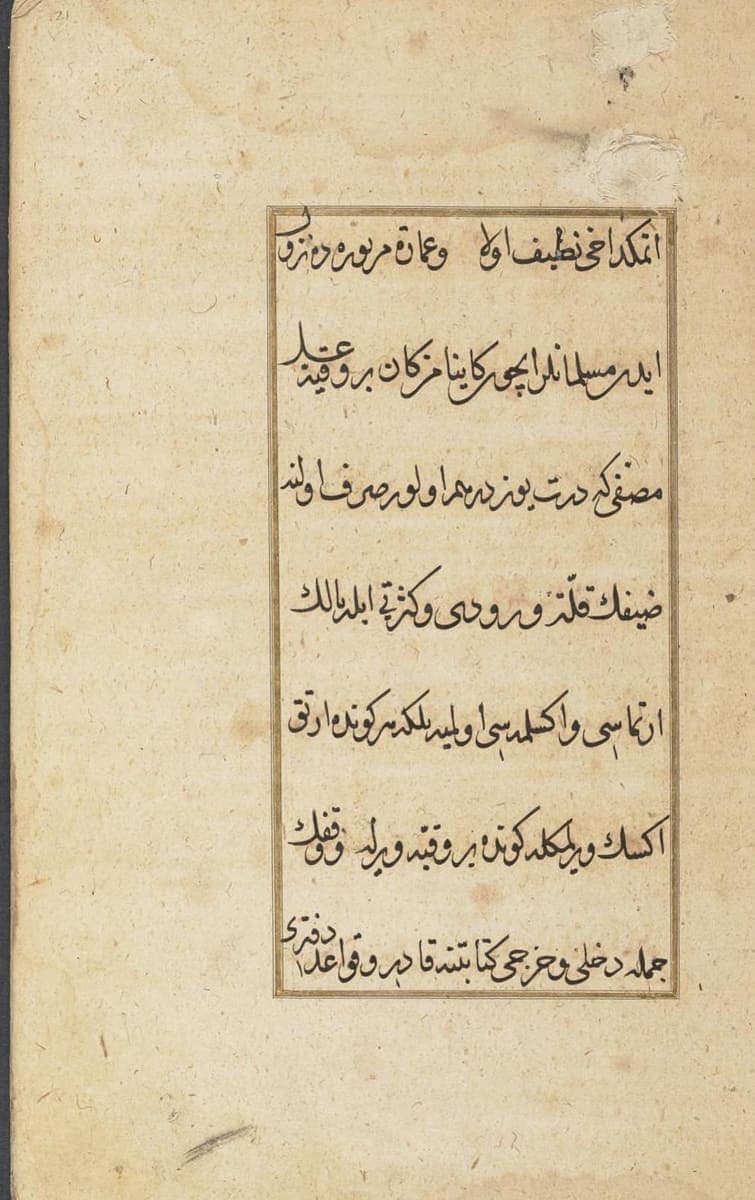 اتمكداخی نطیف اولا وعمارة مزبوره ده نزول
ایدن مسلمانلر ایچون كاینامزكان بر وقیه عسلی
مصفی كه درت یوز درهم اولور صرف اولنه
ضیفك قلّت ورودی وكثرتی ایله بالك
ارتماسی واكسلمه سی اولمیه بلكه هر كونده ارتق
اكسك ویرلمكله كونده بر وقیّه ویرله ووقفك
جمله دخلنی وخرجنی كتابتنه قادر وقواعد دفتری